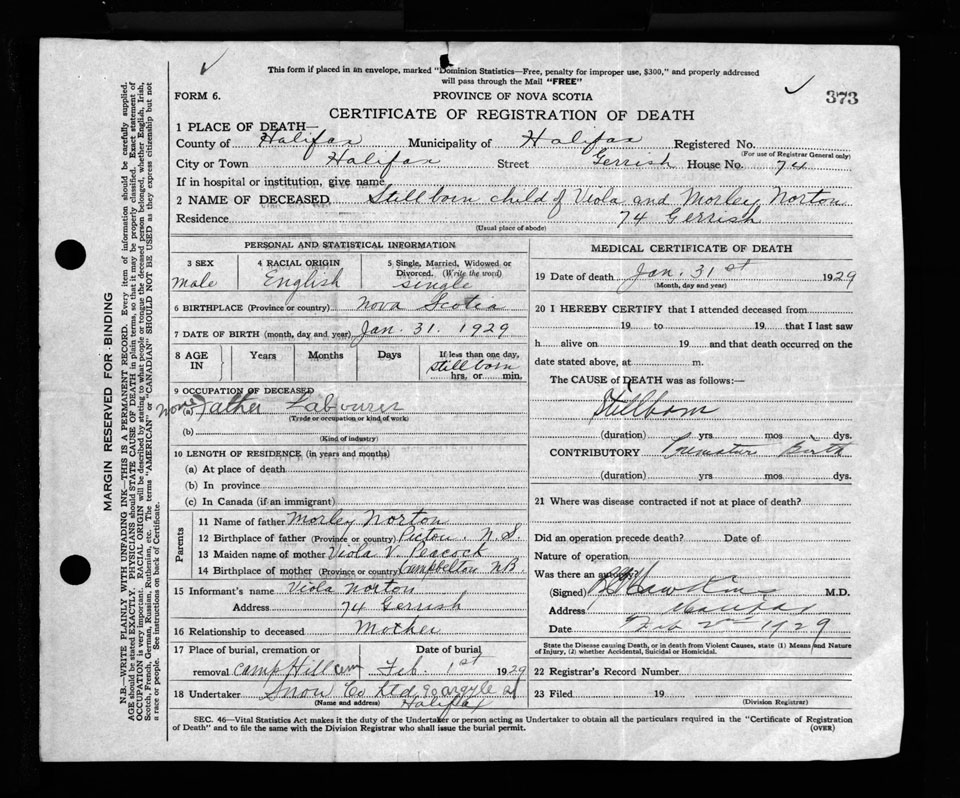 This form if placed in an envelope, marked "Dominion Statistics—Free, penalty for improper use, $300," and properly addressed
will pass through the Mail "FREE"
FORM 6. PROVINCE OF NOVA SCOTIA 373
CERTIFICATE OF REGISTRATION OF DEATH
1 PLACE OF DEATH—
County of Halifax Municipality of Halifax Registered No.
(For use of Registrar General only)
City or Town Halifax Street Gerrish House No. 74
If in hospital or institution, give name
2 NAME OF DECEASED Stillborn child of Viola and Morley Norton
Residence 74 Gerrish
(Usual place of abode)
PERSONAL AND STATISTICAL INFORMATION
3 SEX 4 RACIAL ORIGIN 5 Single, Married, Widowed or
Divorced. (Write the word)
male English single
6 BIRTHPLACE (Province or country) Nova Scotia
7 DATE OF BIRTH (month, day and year) Jan. 31. 1929
8 AGE IN Years Months Days If less than one day,
stillborn
hrs. or min.
9 OCCUPATION OF DECEASED
none (a) Father Labourer
(Trade or occupation or kind of work)
(b)
(Kind of industry)
10 LENGTH OF RESIDENCE (in years and months)
(a) At place of death
(b) In province
(c) In Canada (if an immigrant)
Parents
11 Name of father Morley Norton
12 Birthplace of father (Province or country) Pictou. N.S.
13 Maiden name of mother Viola V. Peacock
14 Birthplace of mother (Province or country) Campbelton N.B.
15 Informant's name Viola Norton
Address 74 Gerrish
16 Relationship to deceased Mother
17 Place of burial, cremation or Date of burial
removal Camp Hill Cem Feb. 1st 1929
18 Undertaker Snow Co Ltd 90 Argyle St
(Name and address) Halifax
MEDICAL CERTIFICATE OF DEATH
19 Date of death Jan. 31st 1929
(Month, day and year)
20 I HEREBY CERTIFY that I attended deceased from
19 to 19 that I last saw
h alive on 19 and that death occurred on the
date stated above, at m.
The CAUSE of DEATH was as follows:—
Stillborn
(duration) yrs mos dys.
CONTRIBUTORY Premature Birth
(duration) yrs mos dys.
21 Where was disease contracted if not at place of death?
Did an operation precede death? Date of
Nature of operation
Was there an autopsy?
(Signed) Hawkins M.D.
Address Halifax
Date Feb 2nd 1929
State the Disease causing Death, or in death from Violent Causes, state (1) Means and Nature
of Injury, (2) whether Accidental, Suicidal or Homicidal.
22 Registrar's Record Number
23 Filed 19
(Division Registrar)
SEC. 46—Vital Statistics Act makes it the duty of the Undertaker or person acting as Undertaker to obtain all the particulars required in the "Certificate of Registration
of Death" and to file the same with the Division Registrar who shall issue the burial permit. (OVER)
MARGIN RESERVED FOR BINDING
N.B.—WRITE PLAINLY WITH UNFADING INK—THIS IS A PERMANENT RECORD. Every item of information should be carefully supplied.
AGE should be stated EXACTLY. PHYSICIANS should STATE CAUSE OF DEATH in plain terms, so that it may be properly classified. Exact statement of
OCCUPATION is very important. RACIAL ORIGIN will be described by stating to what people or tongue the deceased person belonged, whether English, Irish,
Scotch, French, German, Russian, Ruthenian, etc. The terms "AMERICAN" or "CANADIAN" SHOULD NOT BE USED as they express citizenship but not
a race or people. See instructions on back of Certificate.